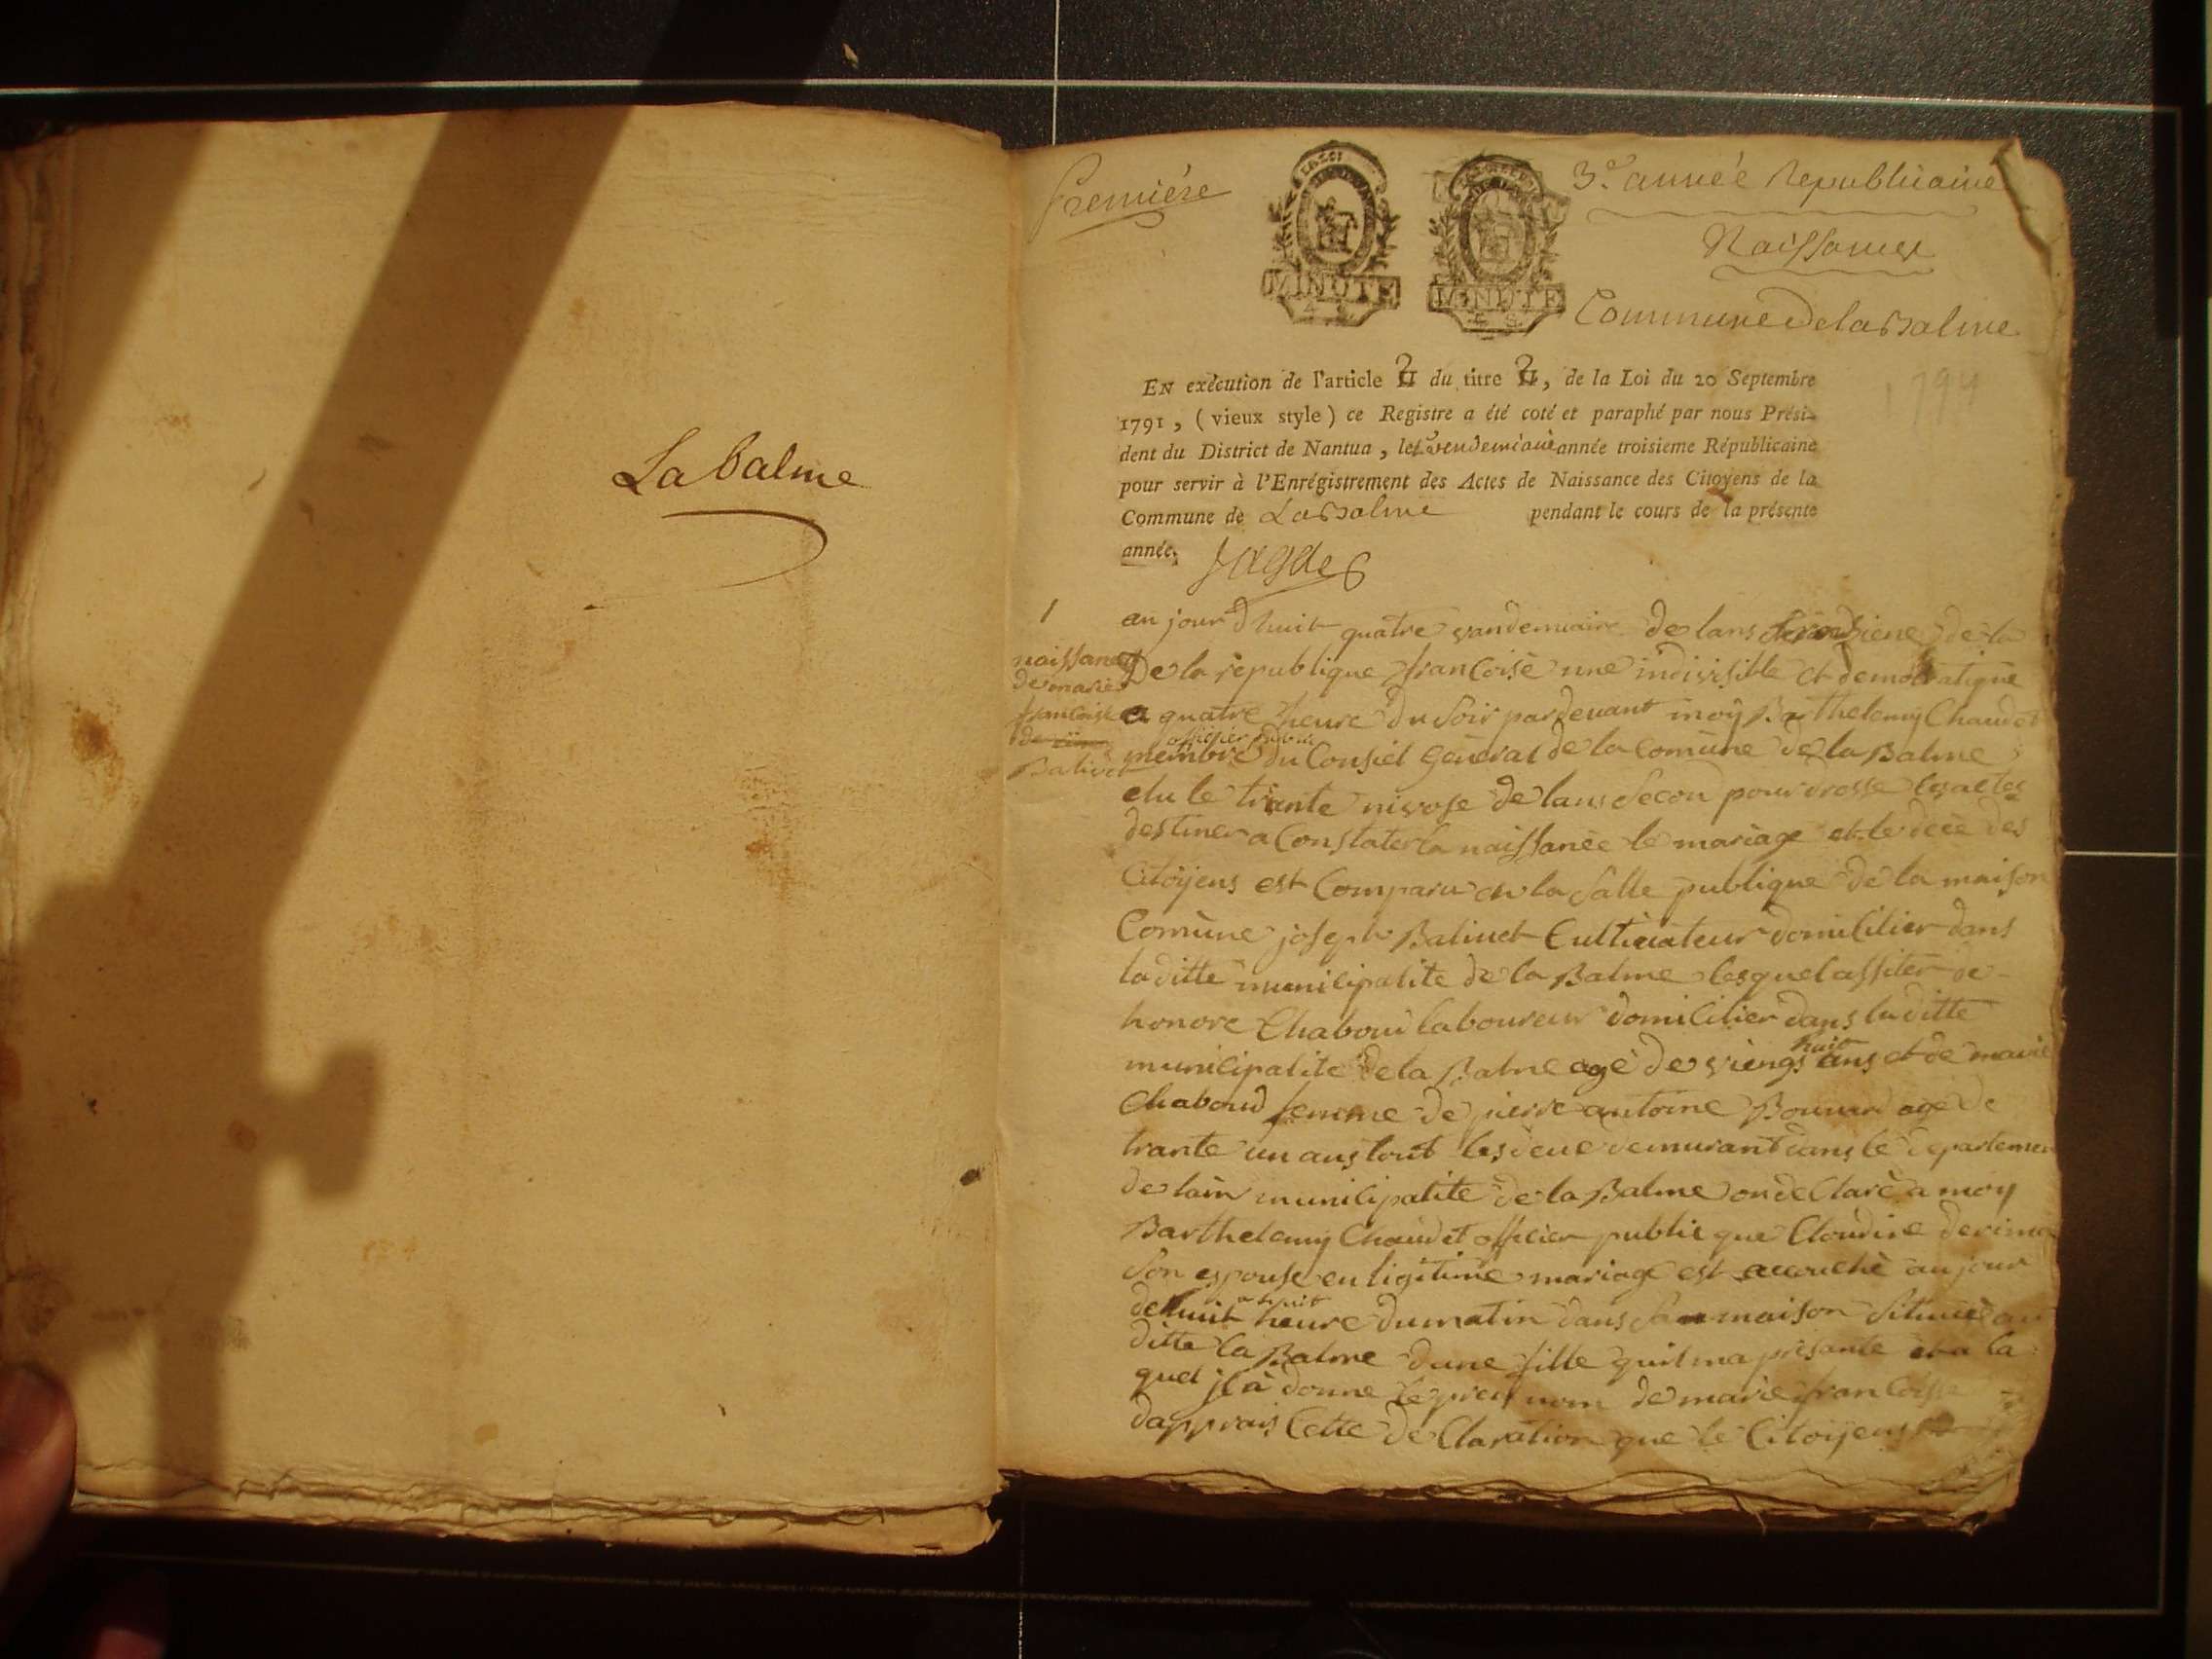 La balme
Premiére
LA LOI
MINUTE
4 S
MINUTE
4 S
3.e année Republicaine
Naissances
Commune de la Balme
1794
EN exécution de l'article 2 du titre 2, de la Loi du 20 Septembre
1791, (vieux style) ce Registre a été coté et paraphé par nous Prési-
dent du District de Nantua, le vendemiaire année troisieme Républicaine
pour servir à l'Enrégistrement des Actes de Naissance des Citoyens de la
Commune de La Balme pendant le cours de la présente
année.
1
naissance
de marie
francoise
Balivet
au jour dhuit quatre vandemiaire de lans de la
De la republique francoise une indivisible et democratique
a quatre heure du soir pardevant moy Barthelemy Chaudet
officier public
membre du Consiel general de la Comune de la Balme
elu le trante nivose de lans secon pour drosse les actes
destiner a Constater la naissance le mariage et le dece des
Citoyens est Comparu en la salle publique de la maison
Comune joseph Balivet Cultivateur domicilier dans
la ditte municipalite de la Balme lesquel assiter de
honore Chaboud laboureur domicilier dans la ditte
municipalite de la Balme agé de viengs huit ans et de marie
Chaboud femme de pierre antoine age de
trante un ans tout les deue demurant dans le departemen
de lain municipalite de la Balme on declaré a moy
Barthelemy Chaudet officier public que Cloudine
son espouse en ligitime mariage est accouché aujour
dehuit a huit heure du matin dans sa maison situeé au
ditte la Balme dune fille quil ma presante et a la
quel jl à donne le pren nom de marie francoisse
dapprais Cette de Claration que le Citoijens